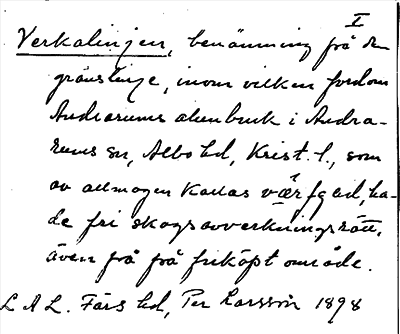 I
Verkalinjen, benämning på den
gränslinje, inom vilken fordom
Andrarums alunbruk i Andra-
rums sn, Albo hd, Krist. l., som
av allmogen kallas värfgæd, ha-
de fri skogsavverkningsrätt,
även på på friköpt område.
L A L. Färs hd, Per Larsson 1898